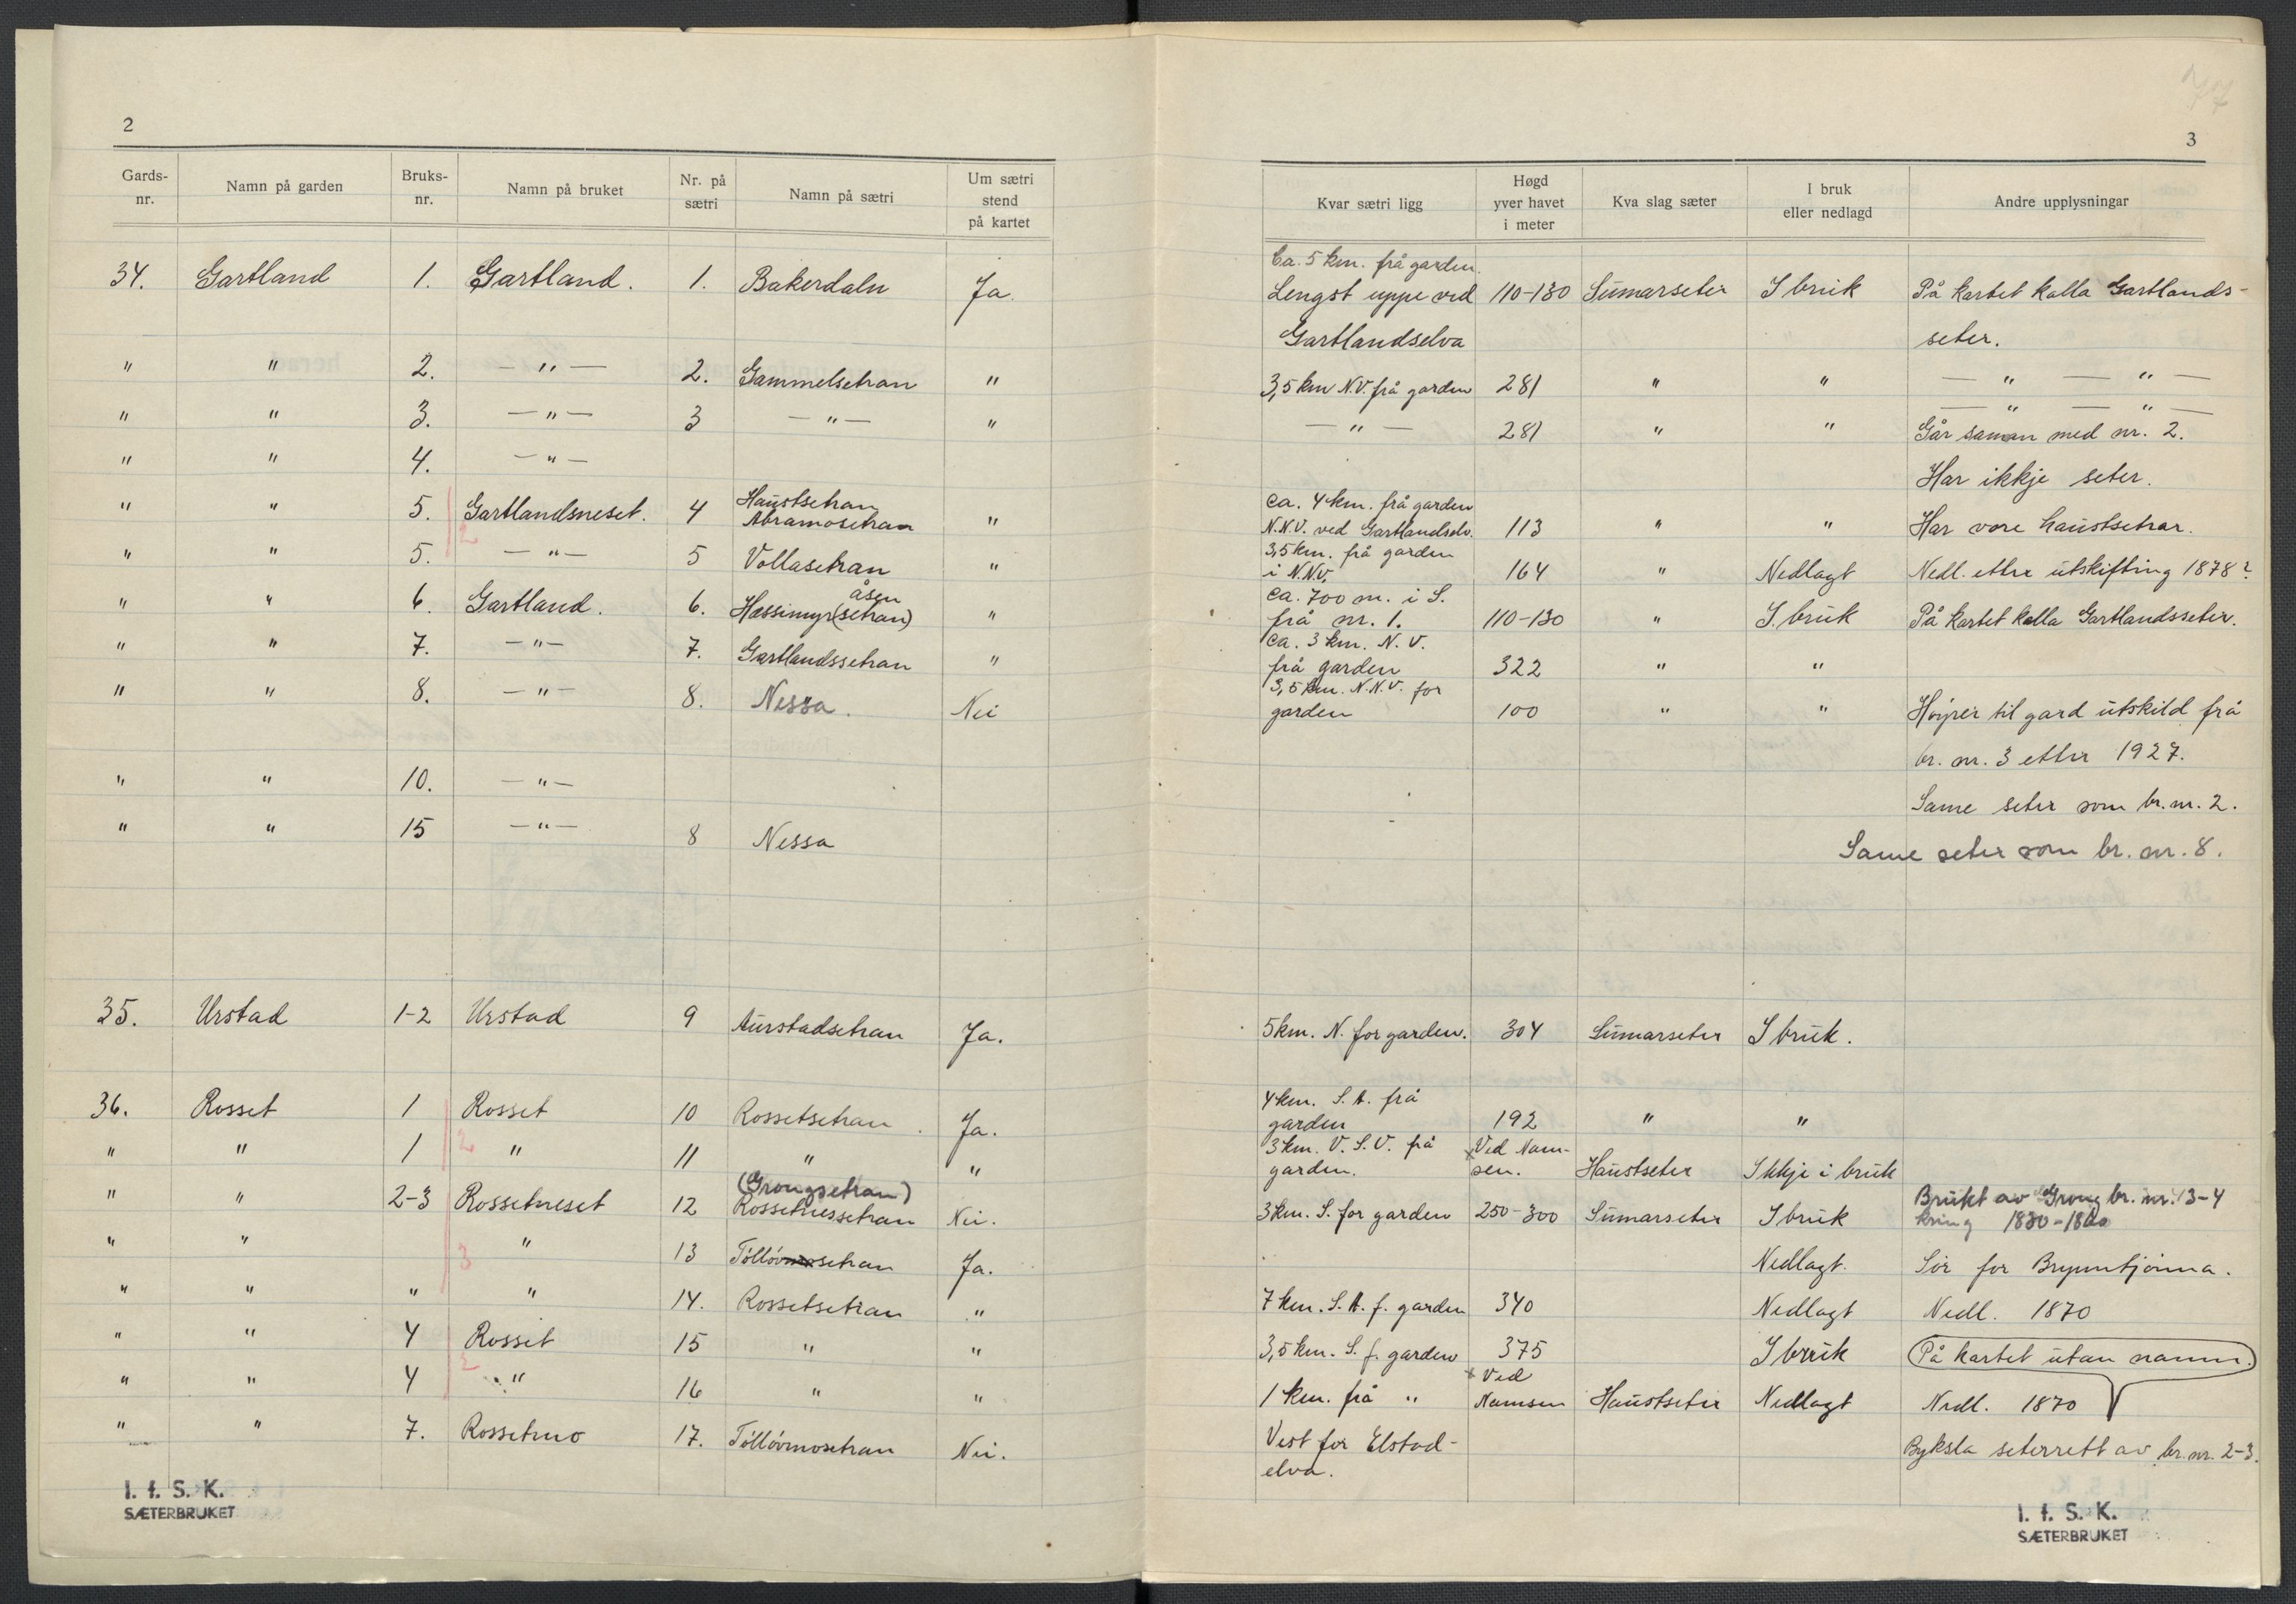 2
Gards-nr. Namn på garden Bruks-nr. Namn på bruket Nr. på sætri Namn på sætri Um sætri stend på kartet
34. Gartland 1. Gartland. 1. Bakerdaln Ja.
" " 2. — " — 2. Gammelsetran "
" " 3. — " — 3 — " — "
" " 4. — " —
" " 5. Gartlandsneset. 4 Haustsetran Abramosetran "
2
" " 5. — " — 5 Vollasetran "
" " 6. Gartland. 6. Hæssimyr(setran) åsen "
" " 7. — " — 7. Gartlandssetran "
" " 8. — " — 8. Nessa. Nei
" " 10. — " —
" " 15 — " — 8 Nessa
35. Urstad 1-2 Urstad 9 Aurstadsetran Ja.
36. Rosset 1 Rosset 10 Rossetsetran. Ja.
" " 1 2 " 11 " "
(Grongsetran)
" " 2-3 Rossetneset 12 Rossetnessetran Nei.
" " 3 " 13 Tøllövmosetran Ja.
" " " " 14. Rossetsetran "
" " 4 Rosset 15 " "
" " 4 2 " 16 " "
" " 7. Rossetmo 17. Tøllövmosetran Nei.
I. f. S. K.
SÆTERBRUKET
77
3
Kvar sætri ligg Høgd yver havet i meter Kva slag sæter I bruk eller nedlagd Andre upplysningar
Ca. 5 km. frå garden.
Lengst uppe ved 110-130 Sumarseter I bruk På kartet kalla Gartlands-
Gartlandselva seter.
3,5 km N.V. frå garden 281 " " — " — " —
— " — " —
— " — 281 " " Går saman med nr. 2.
Har ikkje seter.
Ca. 4 km. frå garden
N.N.V. ved Gartlandselv. 113 " " Har vore haustsetrar.
3,5 km. frå garden
i N.N.V. 164 " Nedlagt Nedl. etter utskifting 1878?
Ca. 700 m. i S.
frå nr. 1. 110-130 " I bruk På kartet kalla Gartlandsseter.
Ca. 3 km. N.V.
frå garden 322 " "
3,5 km. N.N.V. for
garden 100 " " Høyrer til gard utskild frå
br. nr. 3 etter 1927.
Same seter som br. nr. 2.
Same seter som br. nr. 8.
5 km. N. for garden. 304 Sumarseter I bruk.
4 km. S.A. frå
garden 192 " "
3 km. V.S.V. frå x Ved Nam-
garden. sen. Haustseter Ikkje i bruk
3 km. S. for garden 250-300 Sumarseter I bruk Brukt av Grong br. nr. 3-4
kring
Nedlagt. Sør for Brynntjønna.
7 km. S.A. f. garden 340 Nedlagt Nedl. 1870
3,5 km. S. f. garden 375 I bruk På kartet utan namn.
x Ved
1 km. frå " Namsen Haustseter Nedlagt Nedl. 1870
Vest for Elstad- Byksla seterrett av br. nr. 2-3.
elva.
I. f. S. K.
SÆTERBRUKET